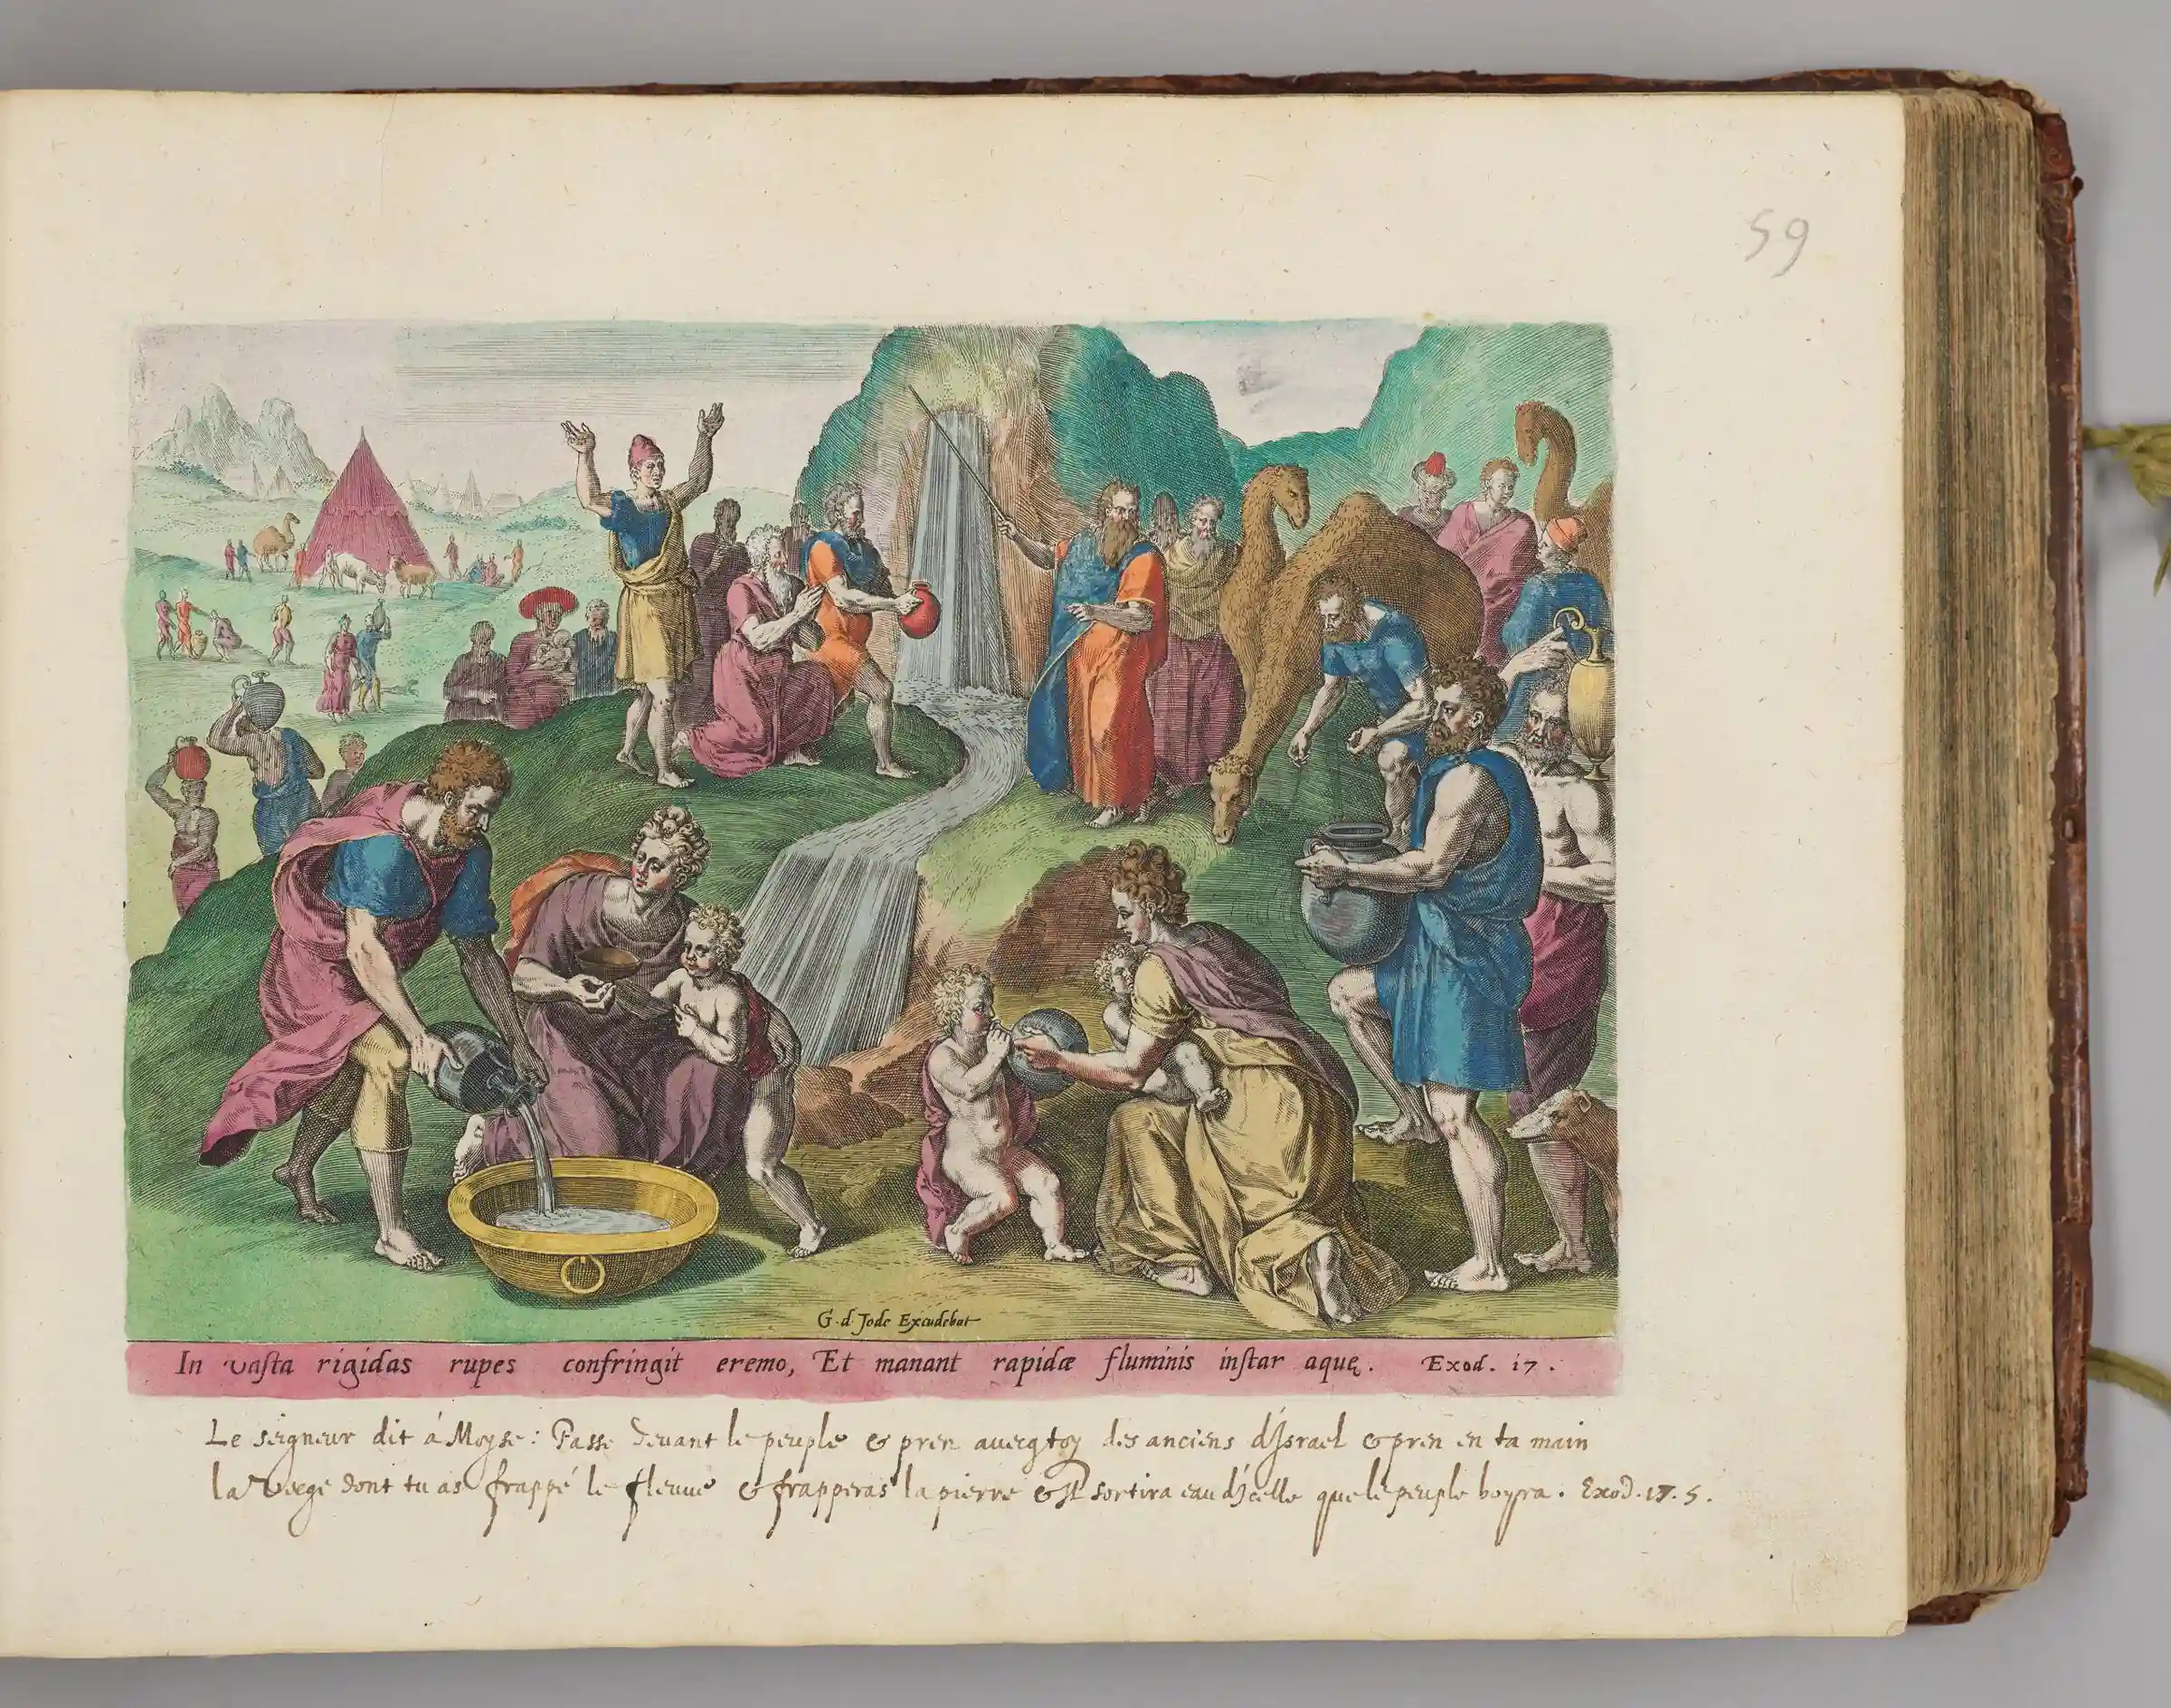 59
G. d. Jode Excudebat
In vasta rigidas rupes confringit eremo, Et manant rapidæ fluminis instar aquę. Exod. 17.
Le seigneur dit á Moyse: Passe devant le peuple & pren avecq toy des anciens d'Israel & pren en ta main
la verge dont tu as frappé le fleuve & frapperas la pierre & Il sortira eau d'Icelle que le peuple boyra. Exod. 17. 5.